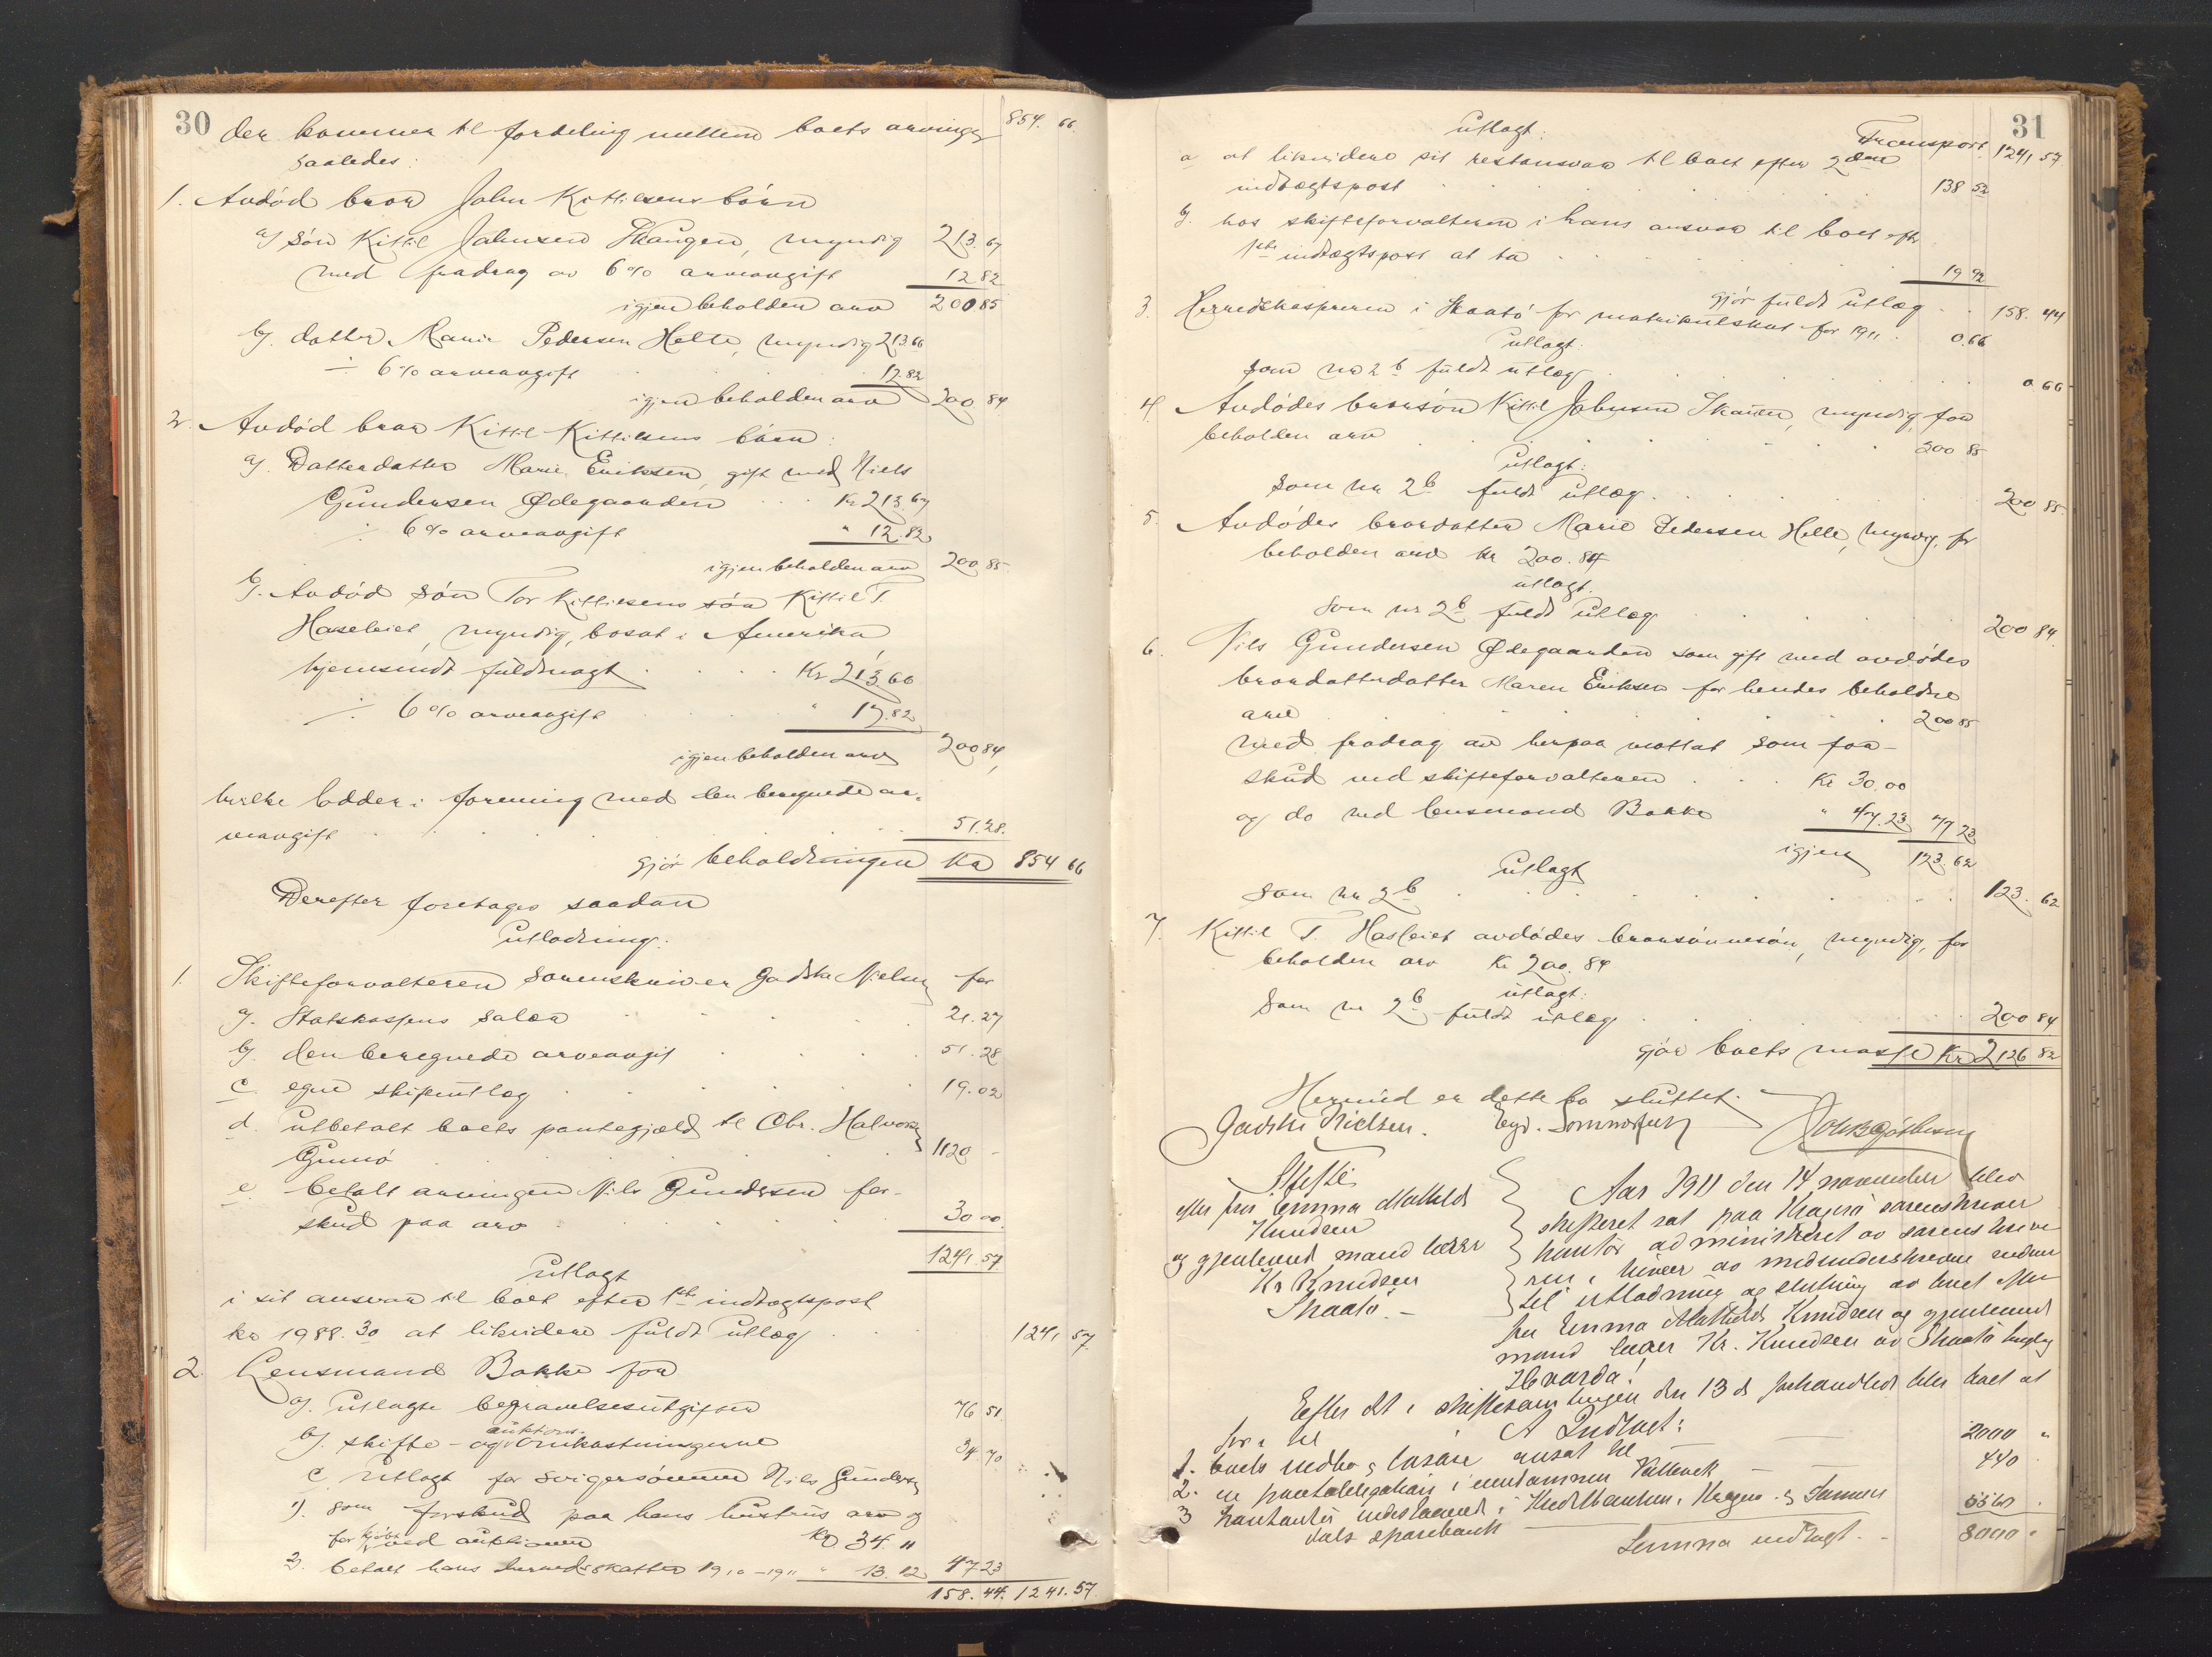 30
der kommer til fordeling mellem boets arvinger 854. 66.
saaledes:
1. Avdød bror John Kittilsens børn
a) søn Kittil Johnsen Skaugen, myndig 213.67
med fradrag av 6% arveavgift 12 82
igjen beholden arv 200 85
b) datter Marie Pedersen Helle, myndig 213.66
÷ 6% arveavgift 12.82
igjen beholden arv 200 84
2. Avdød bror Kittil Kittilsens børn:
a). Datterdatter Maren Eriksen, gift med Niels
Gundersen Ødegaarden Kr 213.67
÷ 6% arveavgift " 12.82
igjen beholden arv 200 85
b). Avdød søn Tor Kittilsens søn Kittil T.
Hasleiet, myndig, bosat i Amerika
hjemsendt fuldmagt Kr 213.66
÷ 6% arveavgift " 12.82
igjen beholden arv 200 84
hvilke lodder i forening med den beregnede ar-
veavgift 51.28.
gjør beholdningen Kr 854 66
Derefter foretages saadan
utlodning:
1. Skifteforvalteren sorenskriver Gadske Nielsen for
a). Statskassens salær 21.27
b). den beregnede arveavgift 51.28
c. egne skifteutlæg 19.02
d. utbetalt boets pantegjæld til Chr. Halvorsen
Gumø 1120 -
e. betalt arvingen Nils Gundersen for-
skud paa arv 30 00.
1241.57
Utlagt
i sit ansvar til boet efter 1ste indtægtspost
kr 1988.30 at likvidere fuldt utlæg 1241 57.
2. Lensmand Bakke for
a). utlagte begravelsesutgifter 76 51.
b). skifte- og auktions-omkostningerne 34.70
c. utlagt for svigersønnen Nils Gundersen
1). som forskud paa hans hustrus arv og
for kjøbt ved auktionen Kr 34. "
2. betalt hans herredsskatter 1910-1911 " 13.23 47 23
158.44. 1241.57.
31
Utlagt: Transport 1241 57
a at likvidere sit restansvar til boet efter 2den
indtægtspost 138 52
b. hos skifteforvalteren i hans ansvar til boet efter
1ste indtægtspost at ta 19 92
gjør fuldt utlæg 158. 44
3. Herredskasseren i Skaatø for matrikulskat for 1911 0.66
utlagt:
som nr 2b fuldt utlæg 0 66
4. Avdødes brorsøn Kittil Johnsen Skauen, myndig, for
beholden arv 200 85
utlagt:
som nr 2b fuldt utlæg 200 85.
5. Avdødes brordatter Marie Pedersen Helle, myndig, for
beholden arv kr 200.84
utlagt.
som nr 2b fuldt utlæg 200 84.
6. Nils Gundersen Ødegaarden som gift med avdødes
brordatterdatter Maren Eriksen for hendes beholdne
arv 200 85
med fradrag av herpaa mottat som for-
skud ved skifteforvalteren Kr 30.00
og do ved lensmand Bakke " 47.23 77 23
igjen 123.62
Utlagt
som nr 2b 123. 62
7. Kittil T. Hasleiet avdødes brorsønnesøn, myndig, for
beholden arv Kr 200.84
utlagt:
som nr 2b fuldt utlæg 200 84
gjør boets masse Kr 2126 82
Hermed er dette bo sluttet.
Gadske Nielsen. Eyv. Sommerfelt
Skifte
efter fru Emma Mathilde
Knudsen
og gjenlevende mand lærer
Kr Knudsen
Skaatø. -
Aar 1911 den 14 november blev
skifteret sat paa Kragerø sorenskriver
kontor administreret av sorenskrive
ren i nærvær av medunderskrevne vidner
til utlodning og slutning av boet efter
fru Emma Mathilde Knudsen og gjenlevende
mand lærer Kr. Knudsen av Skaatø
Hvorda!
Efter det i skiftesamlingen den 13 ds forhandlede blev boet at
gjøre til A Indtægt:
1. boets indbo og løsøre ansat til 2000 "
2. en pantobligation i eiendommen 440
3 kontanter indestaaende i Kreditbanken, Kragerø og Sannidals sparebank 5560 .
Summa indtægt. - 8000 "